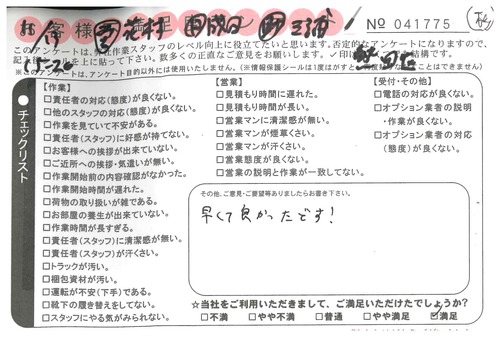 お客様
№ 041775
このアンケートは、弊社作業スタッフのレベル向上に役立てたいと思います。否定的なアンケートになりますので、
記入後
の上に貼って下さい。数多くの正直なご意見をお願いします。
(※このアンケートは、アンケート目的以外には使用いたしません。
チェックリスト
【作業】
□責任者の対応(態度)が良くない。
□他のスタッフの対応(態度)が良くない。
□作業を見ていて不安がある。
□責任者(スタッフ)に好感が持てない。
□お客様への挨拶が出来ていない。
□ご近所への挨拶・気遣いが無い。
□作業開始前の内容確認がなかった。
□作業開始時間が遅れた。
□荷物の取り扱いが雑である。
□お部屋の養生が出来ていない。
□作業時間が長すぎる。
□責任者(スタッフ)に清潔感が無い。
□責任者(スタッフ)が汗くさい。
□トラックが汚い。
□梱包資材が汚い。
□運転が不安(下手)である。
□靴下の履き替えをしてない。
□スタッフにやる気がみられない。
【営業】
□見積もり時間に遅れた。
□見積もり時間が長い。
□営業マンに清潔感が無い。
□営業マンが煙草くさい。
□営業マンが汗くさい。
□営業態度が良くない。
□営業の説明と作業が一致してない。
【受付・その他】
□電話の対応が良くない。
□オプション業者の説明
・作業が良くない。
□オプション業者の対応
(態度)が良くない。
その他、ご意見・ご要望等ありましたらお書き下さい。
早くて良かったです!
☆当社をご利用いただきまして、ご満足いただけたでしょうか?
□不満 □やや不満 □普通 □やや満足 ☑満足